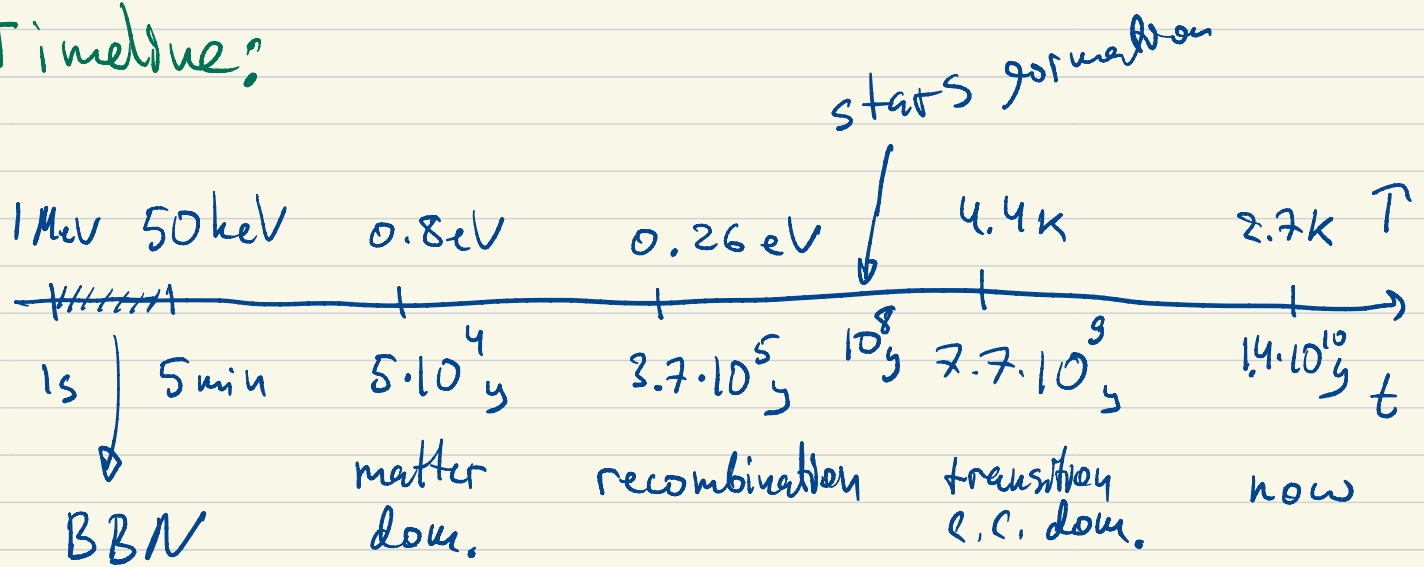 Timeline:
stars formation
1 MeV 50 keV 0.8 eV 0.26 eV 4.4 K 2.7 K T
1s 5 min 5·10⁴ y 3.7·10⁵ y 10⁸ y 7.7·10⁹ y 1.4·10¹⁰ y t
matter recombination transition now
BBN dom. c.c. dom.